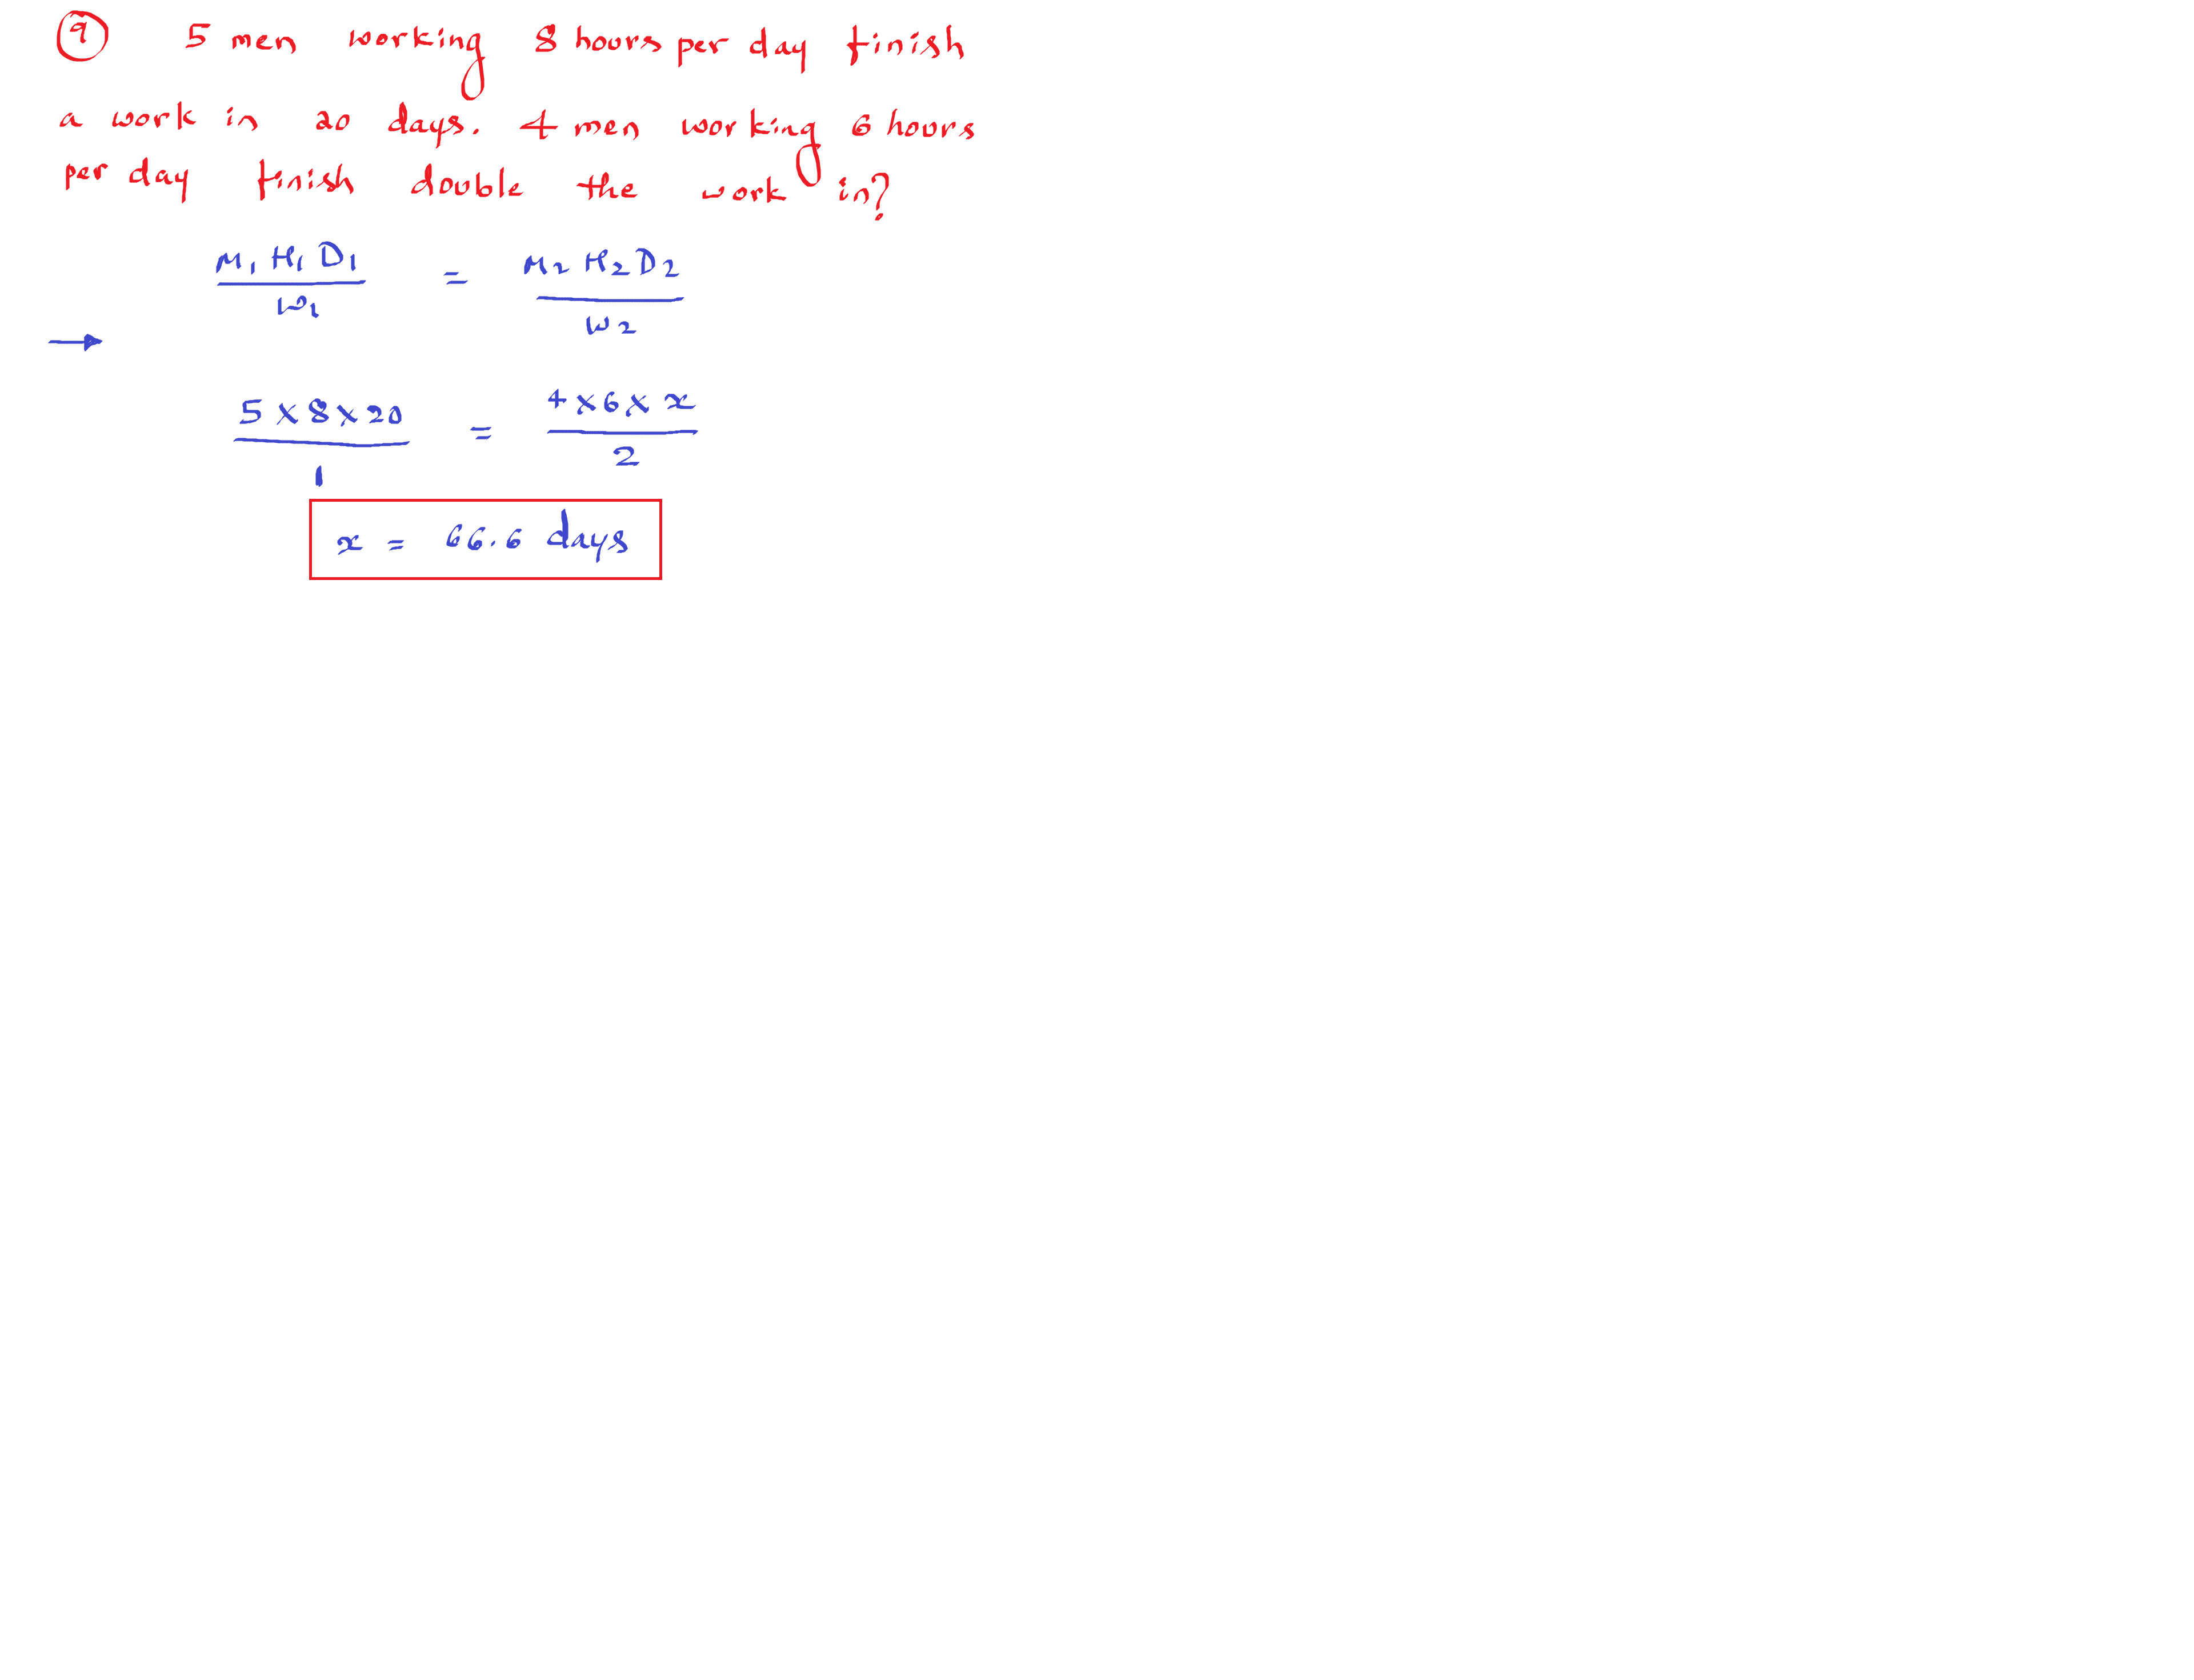 9 5 men working 8 hours per day finish
a work in 20 days. 4 men working 6 hours
per day finish double the work in?
M1 H1 D1 / W1 = M2 H2 D2 / W2
→
5 × 8 × 20 / 1 = 4 × 6 × x / 2
x = 66.6 days